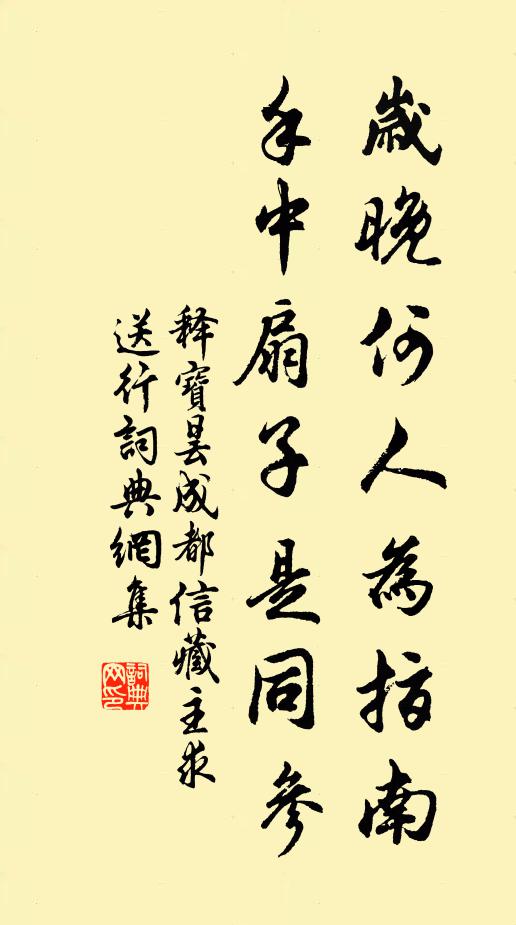 歲晚何人為指南
手中扇子是同參
釋寶曇成都信藏主求
送行詞典網集
詞典
网印